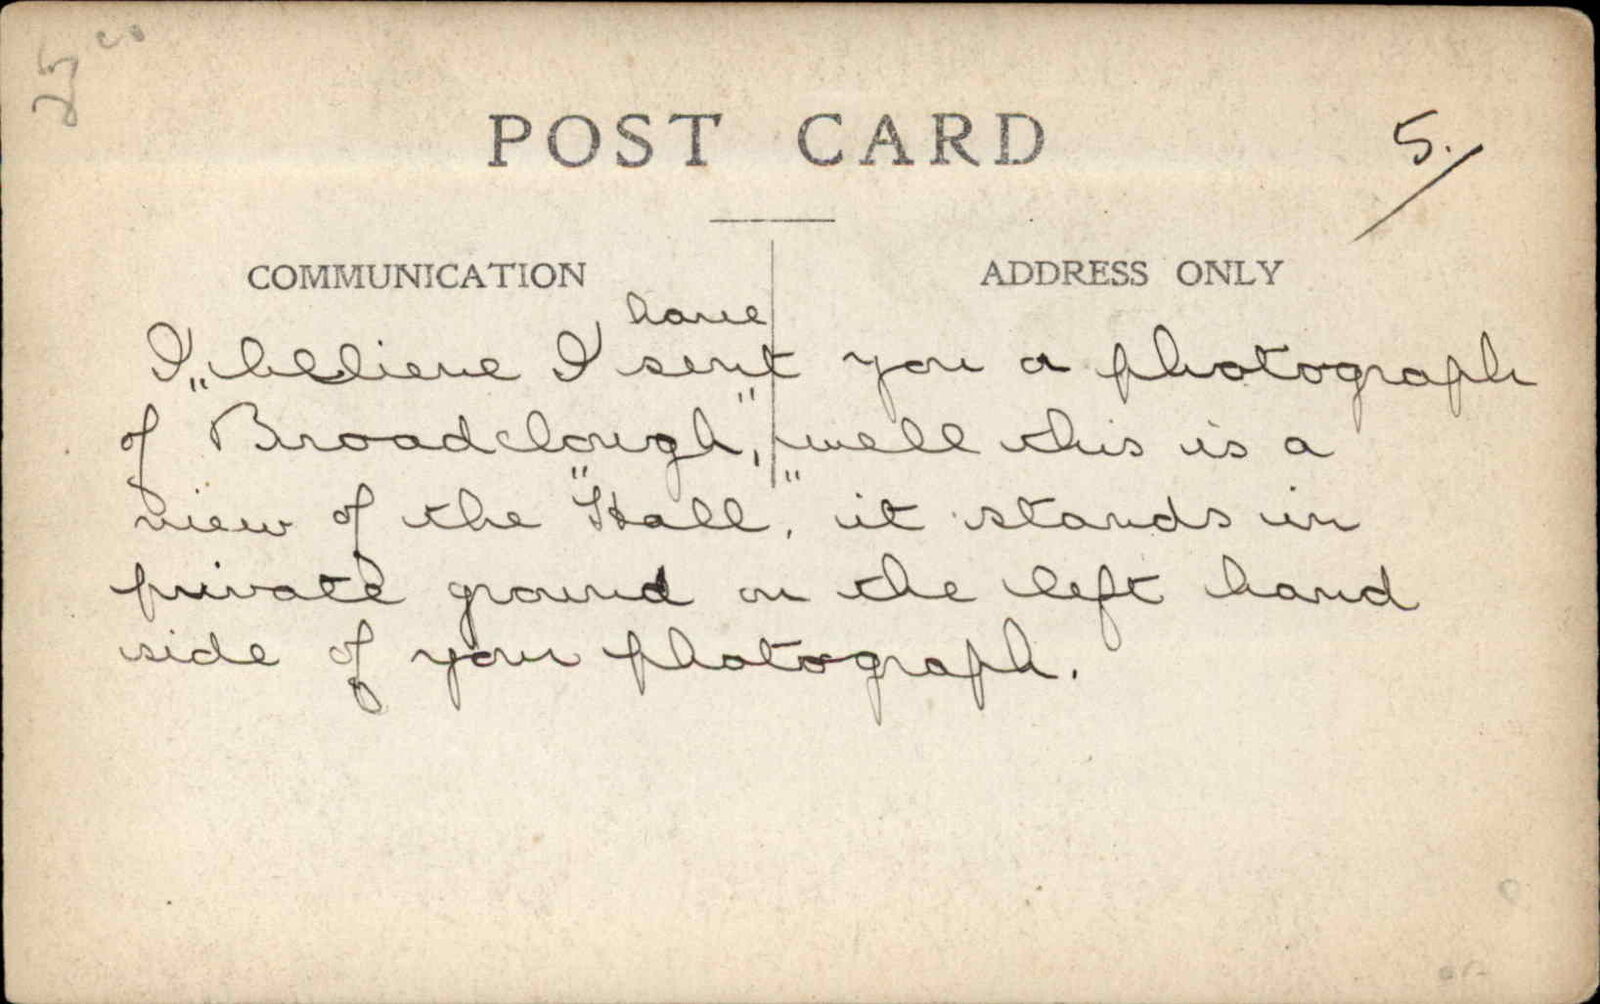 25 00
POST CARD
5.
COMMUNICATION
ADDRESS ONLY
have
I believe I sent you a photograph
of "Broadclough", well this is a
view of the "Hall", it stands in
private ground on the left hand
side of your photograph.